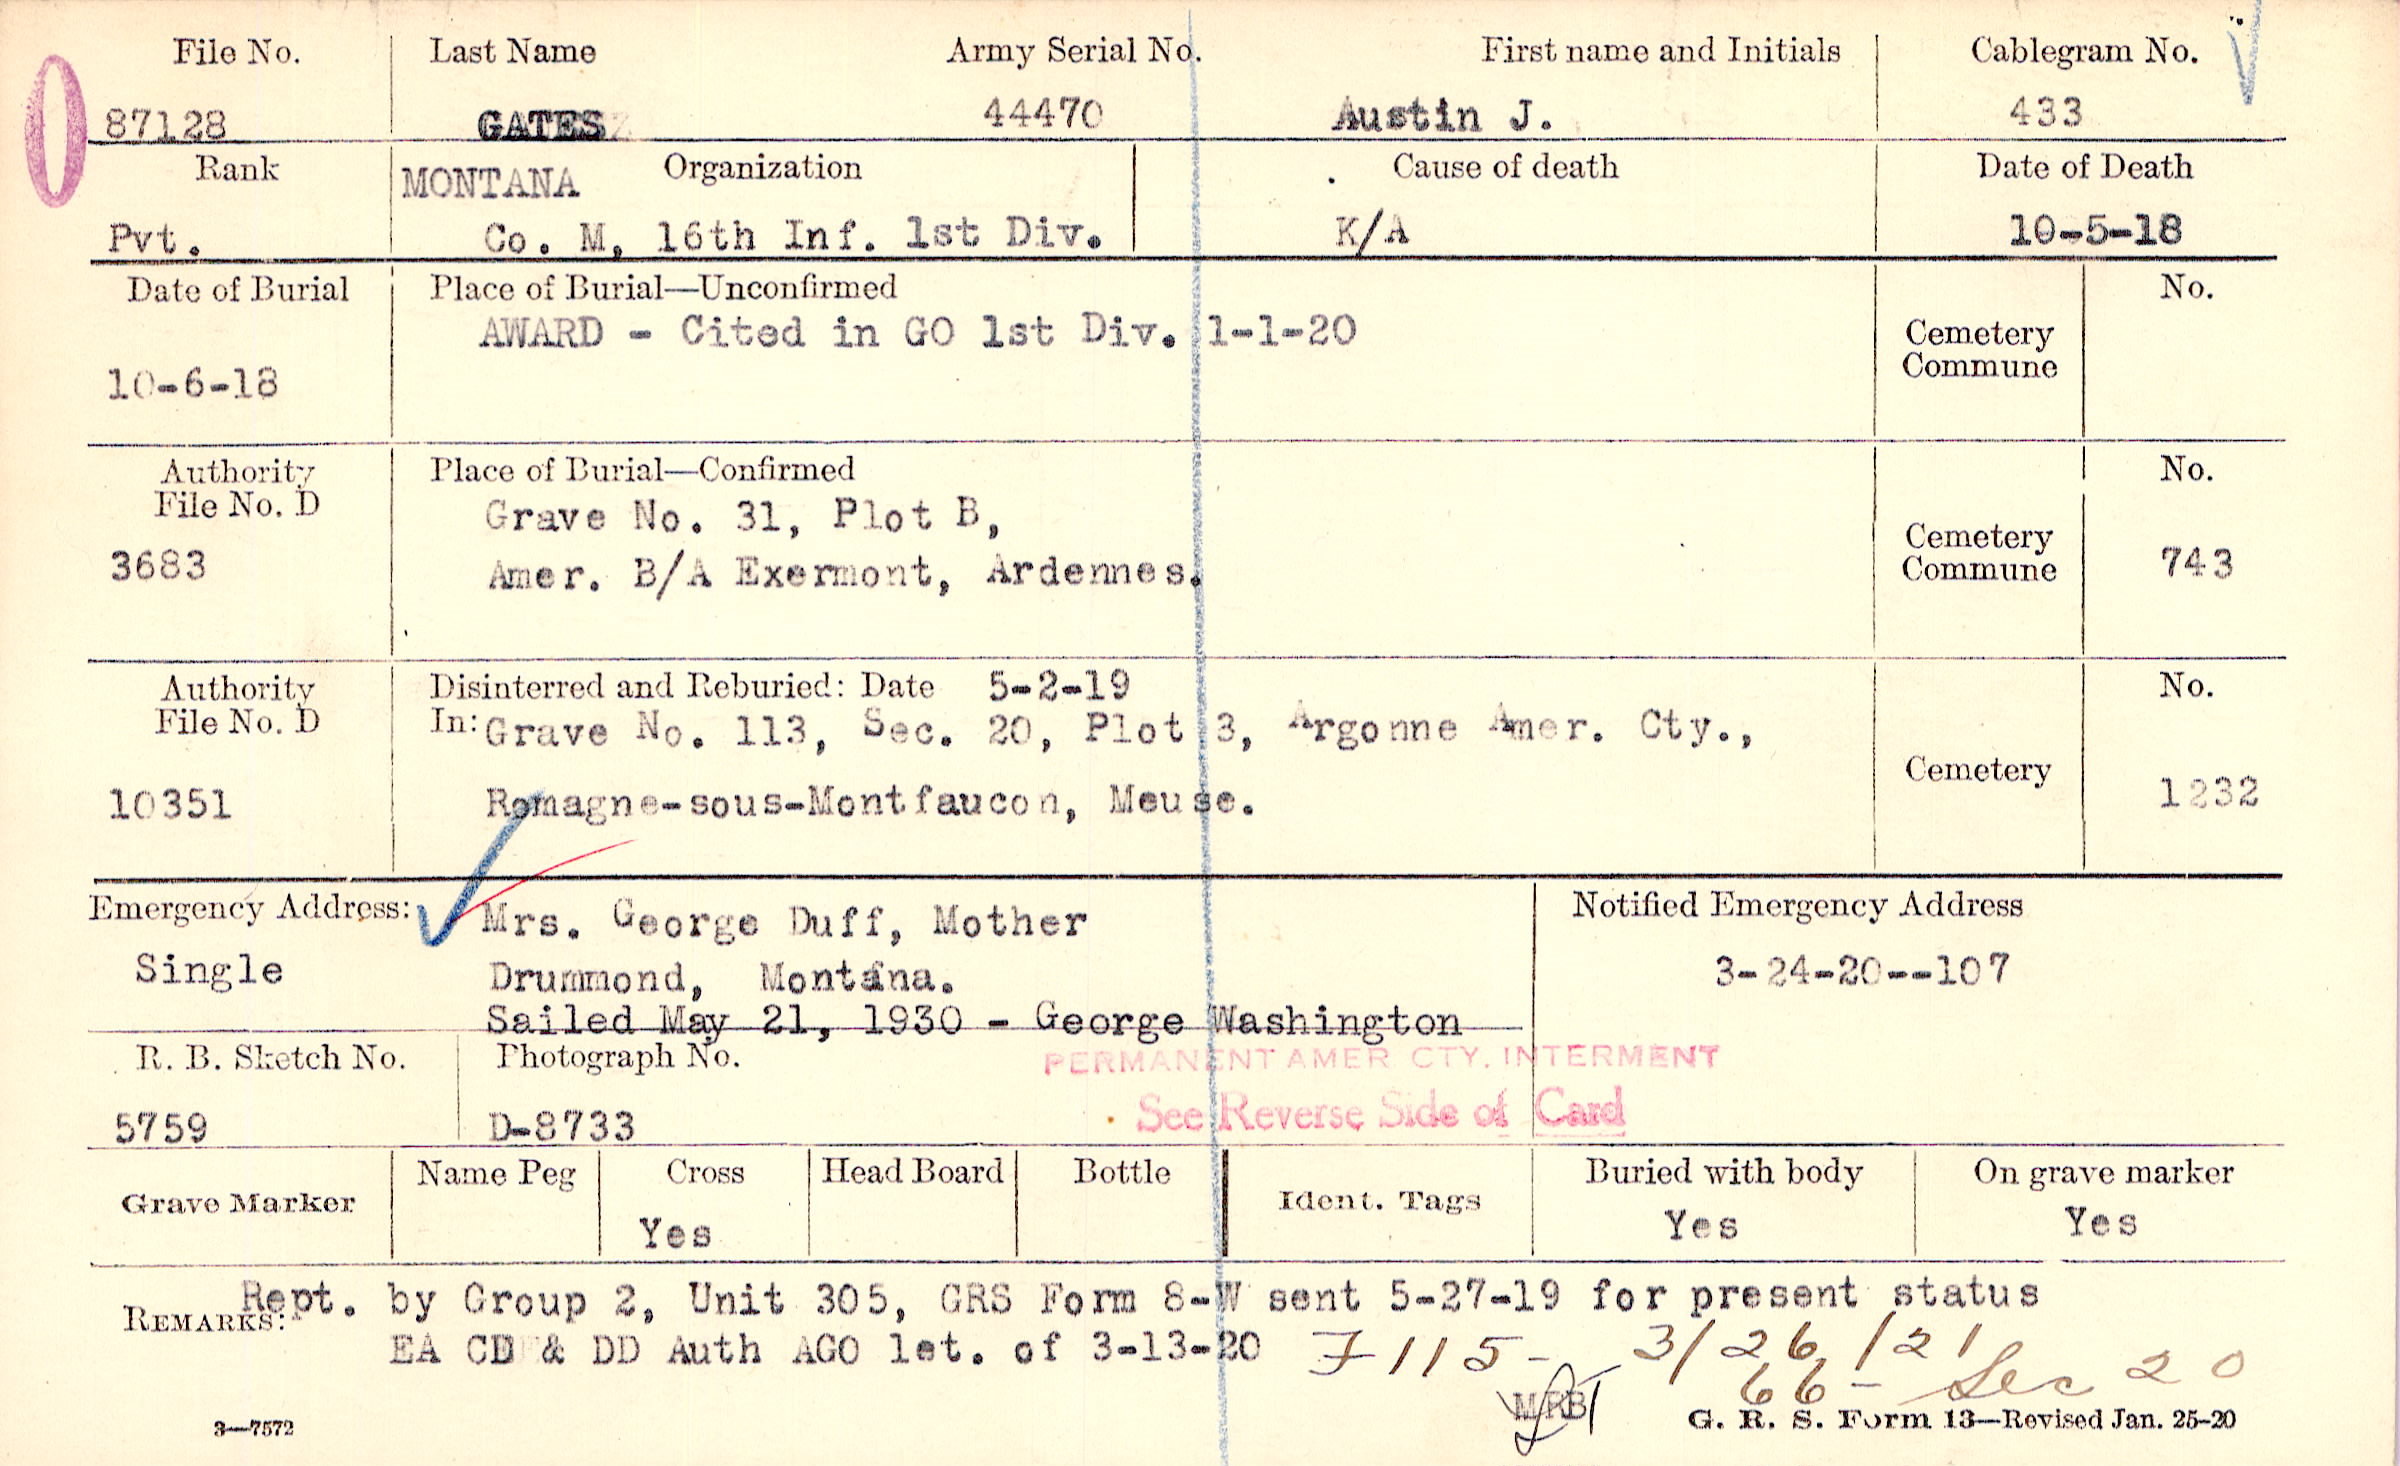 File No. Last Name Army Serial No. First name and Initials Cablegram No.
87128 GATES 44470 Austin J. 433
Rank MONTANA Organization Cause of death Date of Death
Pvt. Co. M, 16th Inf. 1st Div. K/A 10-5-18
Date of Burial Place of Burial—Unconfirmed No.
AWARD - Cited in GO 1st Div. 1-1-20
Cemetery
Commune
10-6-18
Authority Place of Burial—Confirmed No.
File No. D
Grave No. 31, Plot B,
3683 Amer. B/A Exermont, Ardennes.
Cemetery
Commune 743
Authority Disinterred and Reburied: Date 5-2-19 No.
File No. D In: Grave No. 113, Sec. 20, Plot 3, Argonne Amer. Cty.,
Cemetery
10351 Romagne-sous-Montfaucon, Meuse. 1232
Emergency Address: Mrs. George Duff, Mother Notified Emergency Address
Single Drummond, Montana. 3-24-20--107
Sailed May 21, 1930 - George Washington
R. B. Sketch No. Photograph No. PERMANENT AMER CTY. INTERMENT
5759 D-8733 See Reverse Side of Card
Grave Marker Name Peg Cross Head Board Bottle Ident. Tags Buried with body On grave marker
Yes Yes Yes
REMARKS: Rept. by Group 2, Unit 305, GRS Form 8-W sent 5-27-19 for present status
EA CD & DD Auth AGO let. of 3-13-20 F115- 3/26/21
66- Sec 20
MRB
3—7572 G. R. S. Form 13—Revised Jan. 25-20